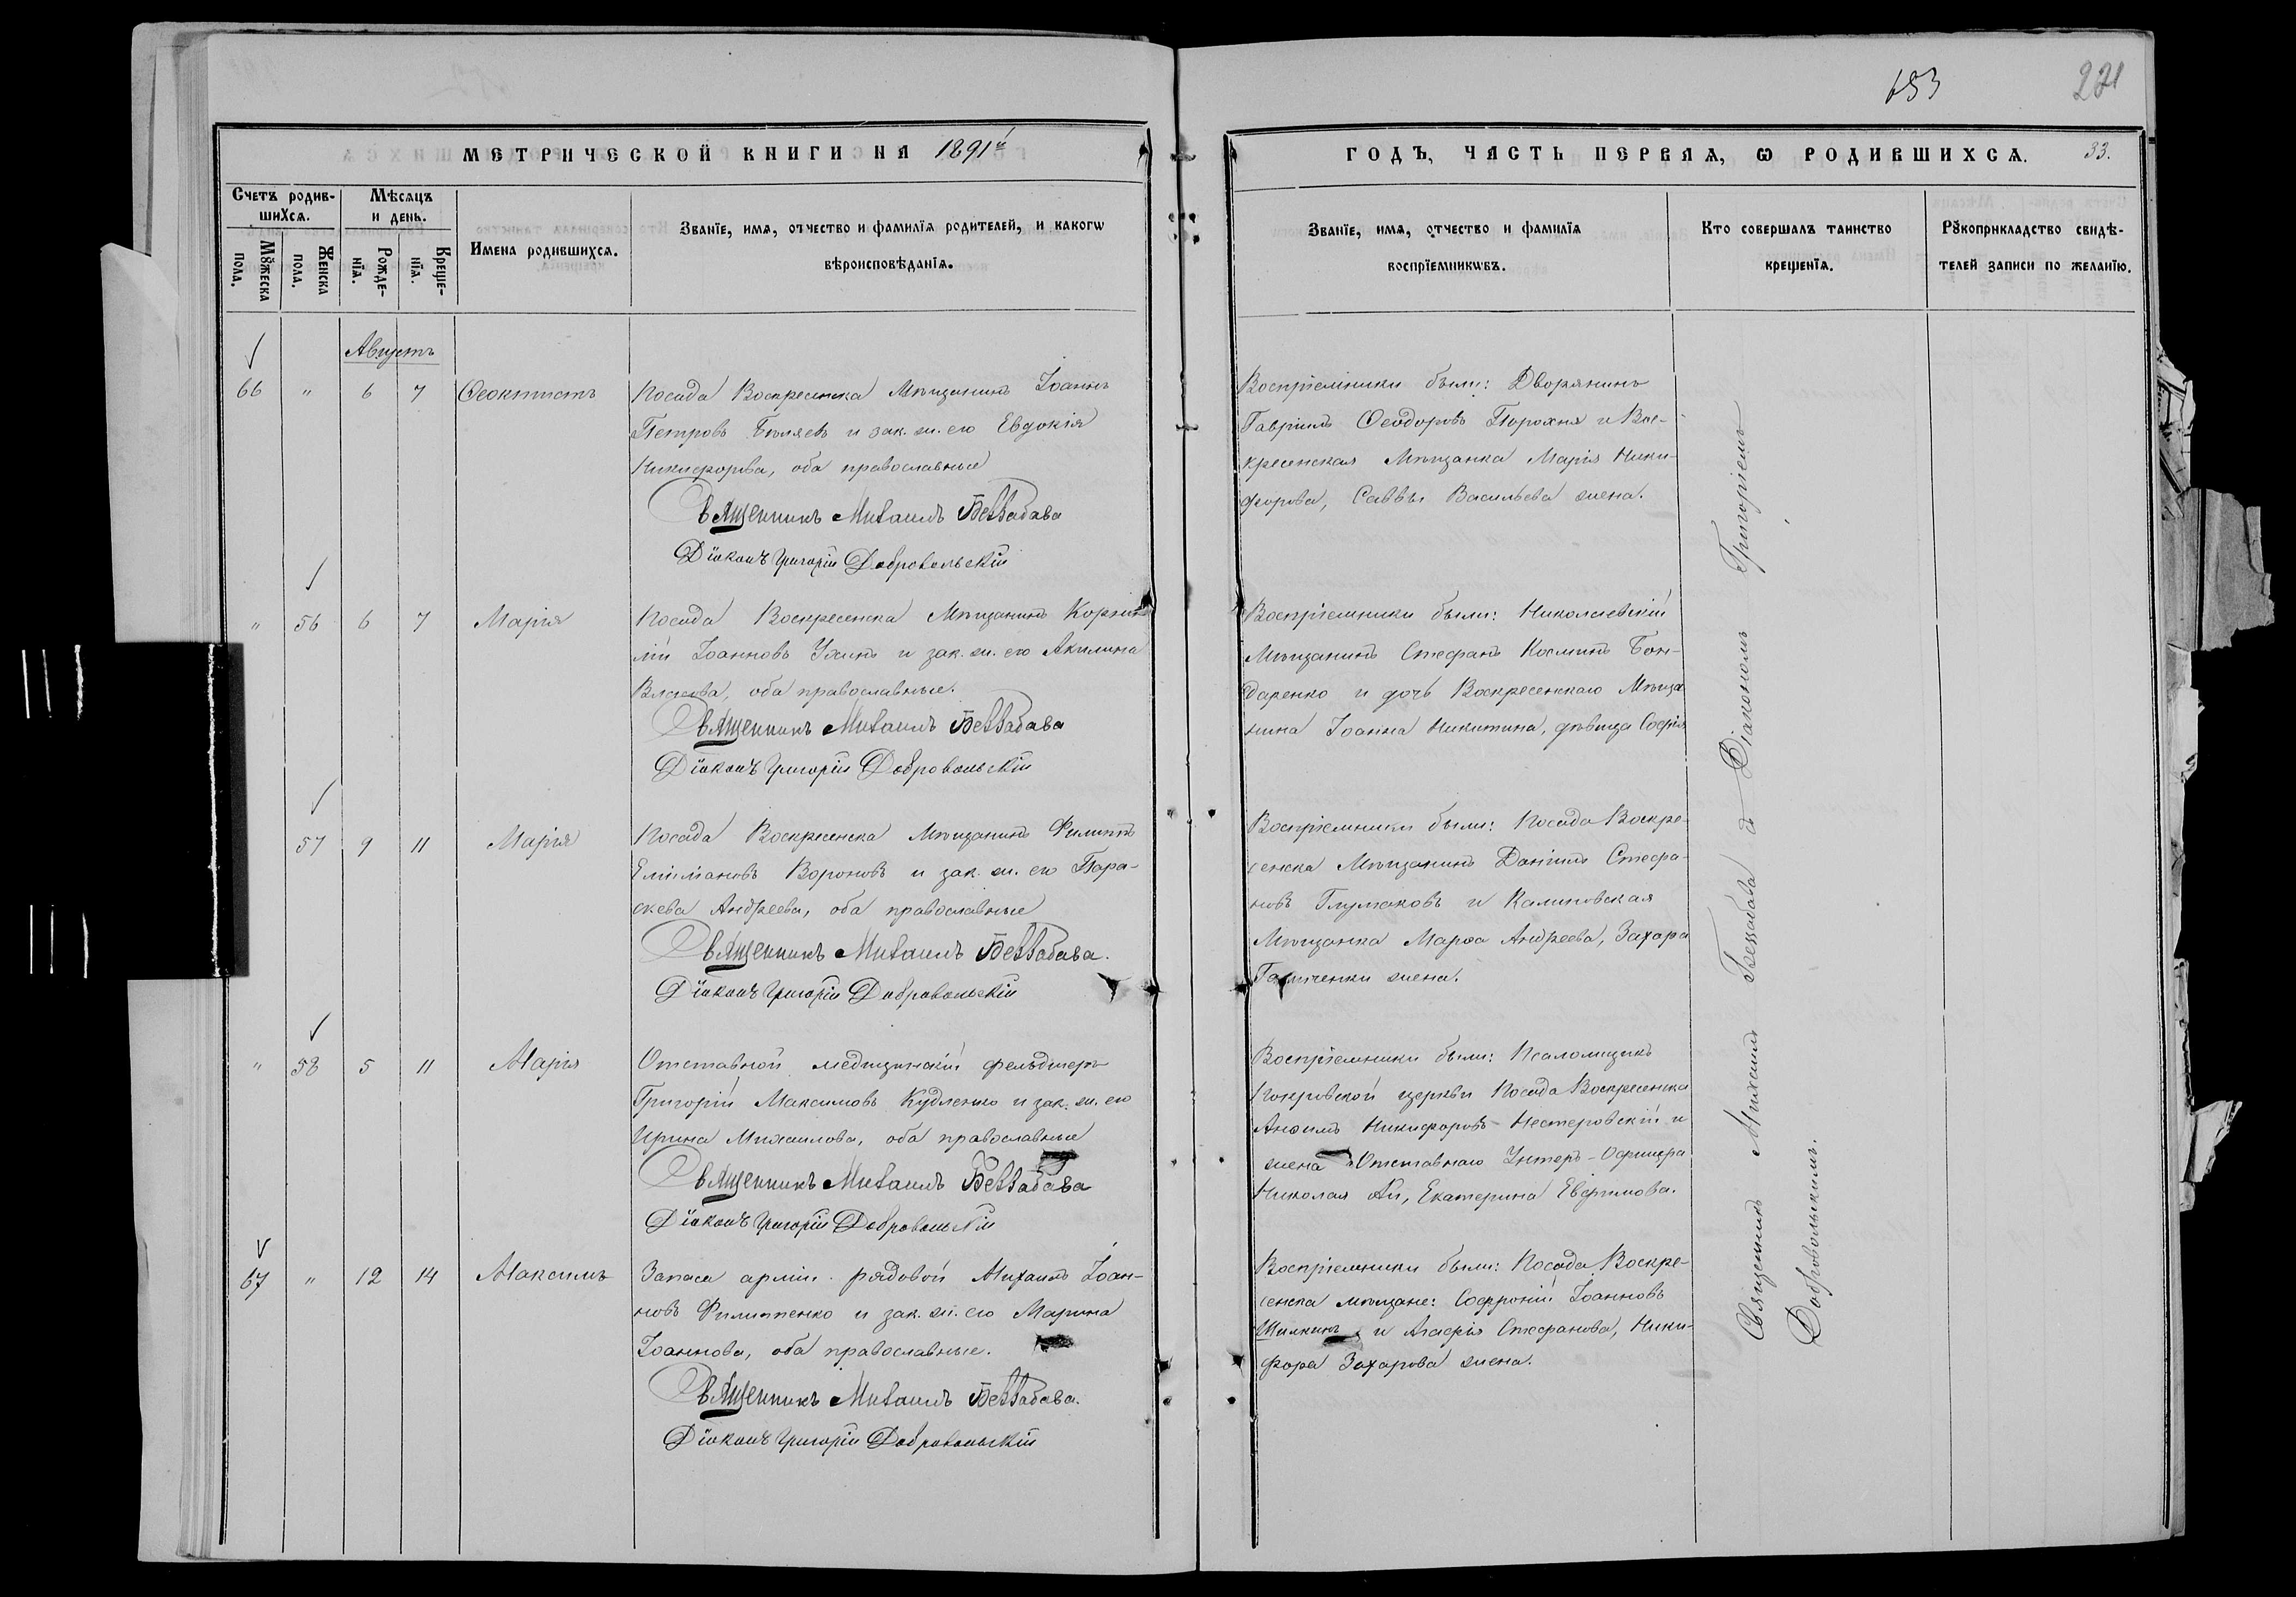 653
221
МЕТРИЧЕСКОЙ КНИГИ НА 1891й
ГОДЪ, ЧАСТЬ ПЕРВАЯ, Ѡ РОДИВШИХСЯ. 33.
Счетъ родив-
шихся.
Мꙋжеска
пола.
Женска
пола.
Мѣсяцъ
и день.
Рожде-
нїя.
Креще-
нїя.
Имена родившихся.
Званїе, имя, отчество и фамилїя родителей, и какогѡ
вѣроисповѣданїя.
Званїе, имя, отчество и фамилїя
воспрїемникѡвъ.
Кто совершалъ таинство
крещенїя.
Рꙋкоприкладство свидѣ-
телей записи по желанїю.
Августъ
66 " 6 7 Ѳеоктистъ
Посада Воскресенска Мѣщанинъ Іоаннъ
Петровъ Бѣляевъ и зак. ж. его Евдокія
Никифорова, оба православные
Священникъ Михаилъ Беззабава
Дїаконъ Григорій Добровольскій
Воспріемники были: Дворянинъ
Гавріилъ Ѳеодоровъ Порохня и Вос-
кресенская Мѣщанка Марія Ники-
форова, Саввы Васильева жена.
" 56 6 7 Марія
Посада Воскресенска Мѣщанинъ Корни-
лій Іоанновъ Ухинъ и зак. ж. его Акилина
Власова, оба православные.
Священникъ Михаилъ Беззабава
Дїаконъ Григорій Добровольскій
Воспріемники были: Николаевскій
Мѣщанинъ Стефанъ Косминъ Бон-
даренко и дочь Воскресенскаго Мѣща-
нина Іоанна Никитина, дѣвица Софія
57 9 11 Марія
Посада Воскресенска Мѣщанинъ Филиппъ
Емиліановъ Вороновъ и зак. ж. его Пара-
скева Андреева, оба православные
Священникъ Михаилъ Беззабава.
Дїаконъ Григорій Добровольскій
Воспріемники были: Посада Воскре-
сенска Мѣщанинъ Даніилъ Стефа-
новъ Глумаковъ и Калиновская
Мѣщанка Марѳа Андреева, Захара
жена.
" 58 5 11 Марія
Отставной медицинскій фельдшеръ
Григорій Максимовъ Кудленко и зак. ж. его
Ирина Михаилова, оба православные
Священникъ Михаилъ Беззабава
Дїаконъ Григорій Добровольскій
Воспріемники были: Псаломщикъ
Покровской церкви Посада Воскресенска
Анѳимъ Никифоровъ Нестеровскій и
жена Отставнаго Унтеръ-Офицера
Николая Екатерина Евфимова.
67 " 12 14 Максимъ
Запаса арміи рядовой Михаилъ Іоан-
новъ Филиппенко и зак. ж. его Марина
Іоаннова, оба православные.
Священникъ Михаилъ Беззабава.
Дїаконъ Григорій Добровольскій
Воспріемники были: Посада Воскре-
сенска мѣщане: Софроній Іоанновъ
Шилкинъ и Агафія Стефанова, Ники-
фора Захарова жена.
Священникъ Михаилъ Беззабава съ Діакономъ Григоріемъ
Добровольскимъ.